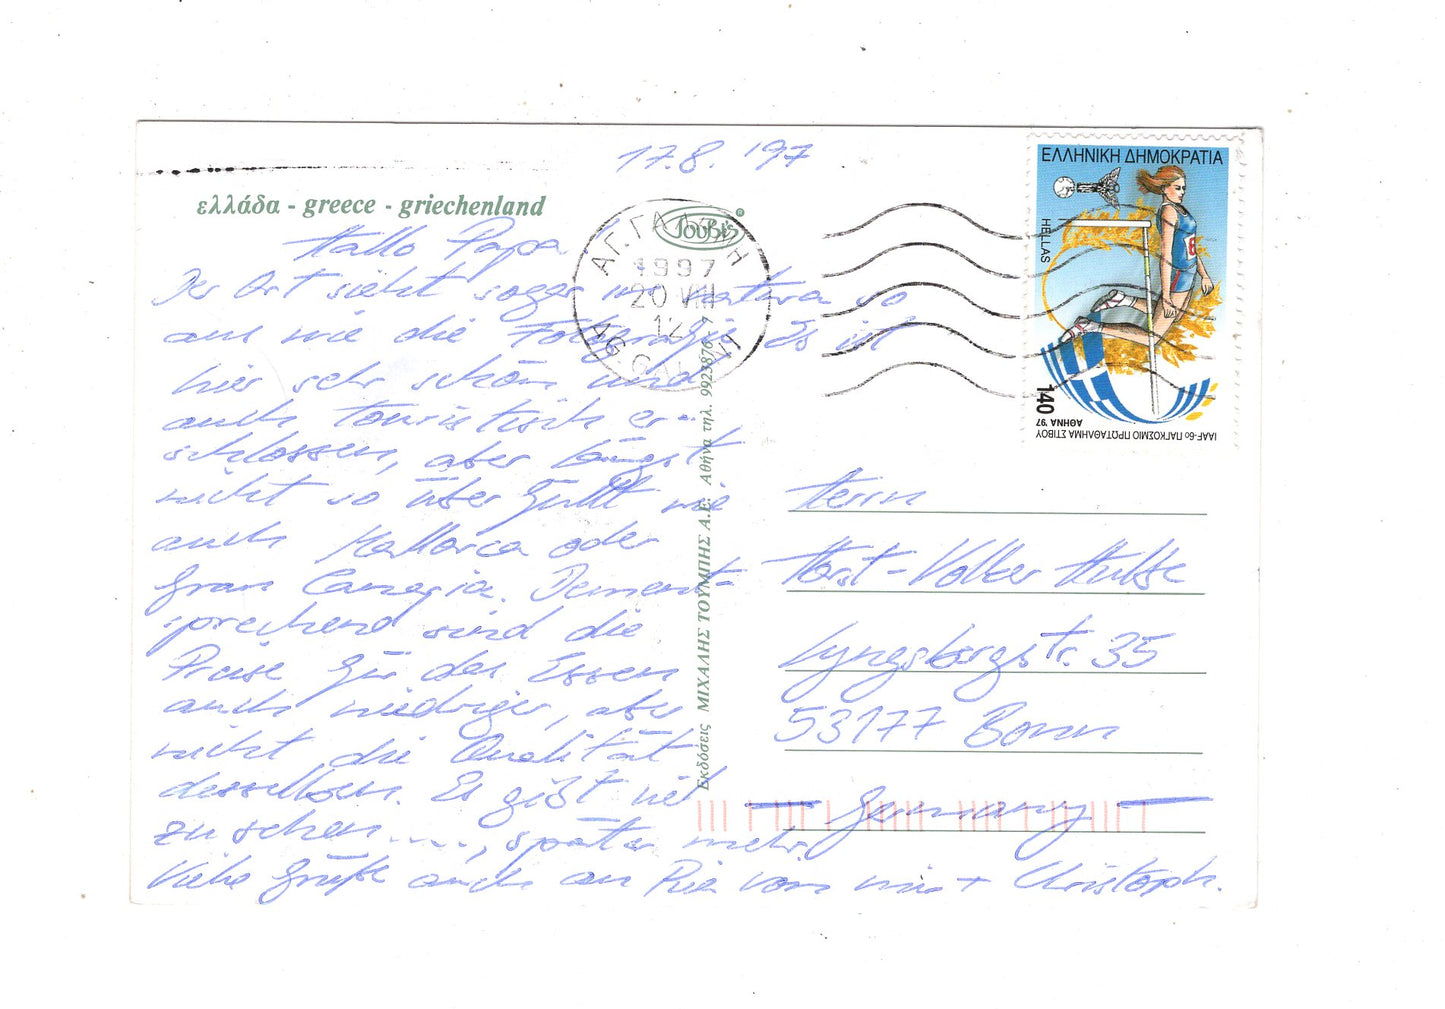 17.8. '97
ελλάδα - greece - griechenland
Τουβi's
ΑΓ. ΓΑΛΗΝΗ
1997
20 VIII
12
AG. GALINI
ΕΛΛΗΝΙΚΗ ΔΗΜΟΚΡΑΤΙΑ
HELLAS
140
ΑΘΗΝΑ '97
IAAF-6ο ΠΑΓΚΟΣΜΙΟ ΠΡΩΤΑΘΛΗΜΑ ΣΤΙΒΟΥ
Hallo Papa
Der Ort sieht sogar in natura so
aus wie die Fotografie. Es ist
hier sehr schön und
auch touristisch er-
schlossen, aber längst
nicht so überfüllt wie
auch Mallorca oder
Gran Canaria. Dement-
sprechend sind die
Preise für das Essen
auch niedriger, aber
nicht die Qualität
desselben. Es gibt viel
zu sehen ...., später mehr.
Viele Grüße auch an Pia von mir + Christoph.
Εκδόσεις ΜΙΧΑΛΗΣ ΤΟΥΜΠΗΣ Α.Ε. Αθήνα τηλ. 9923876
Herrn
Horst-Volker
Lyngsbergstr. 35
53177 Bonn
— Germany —